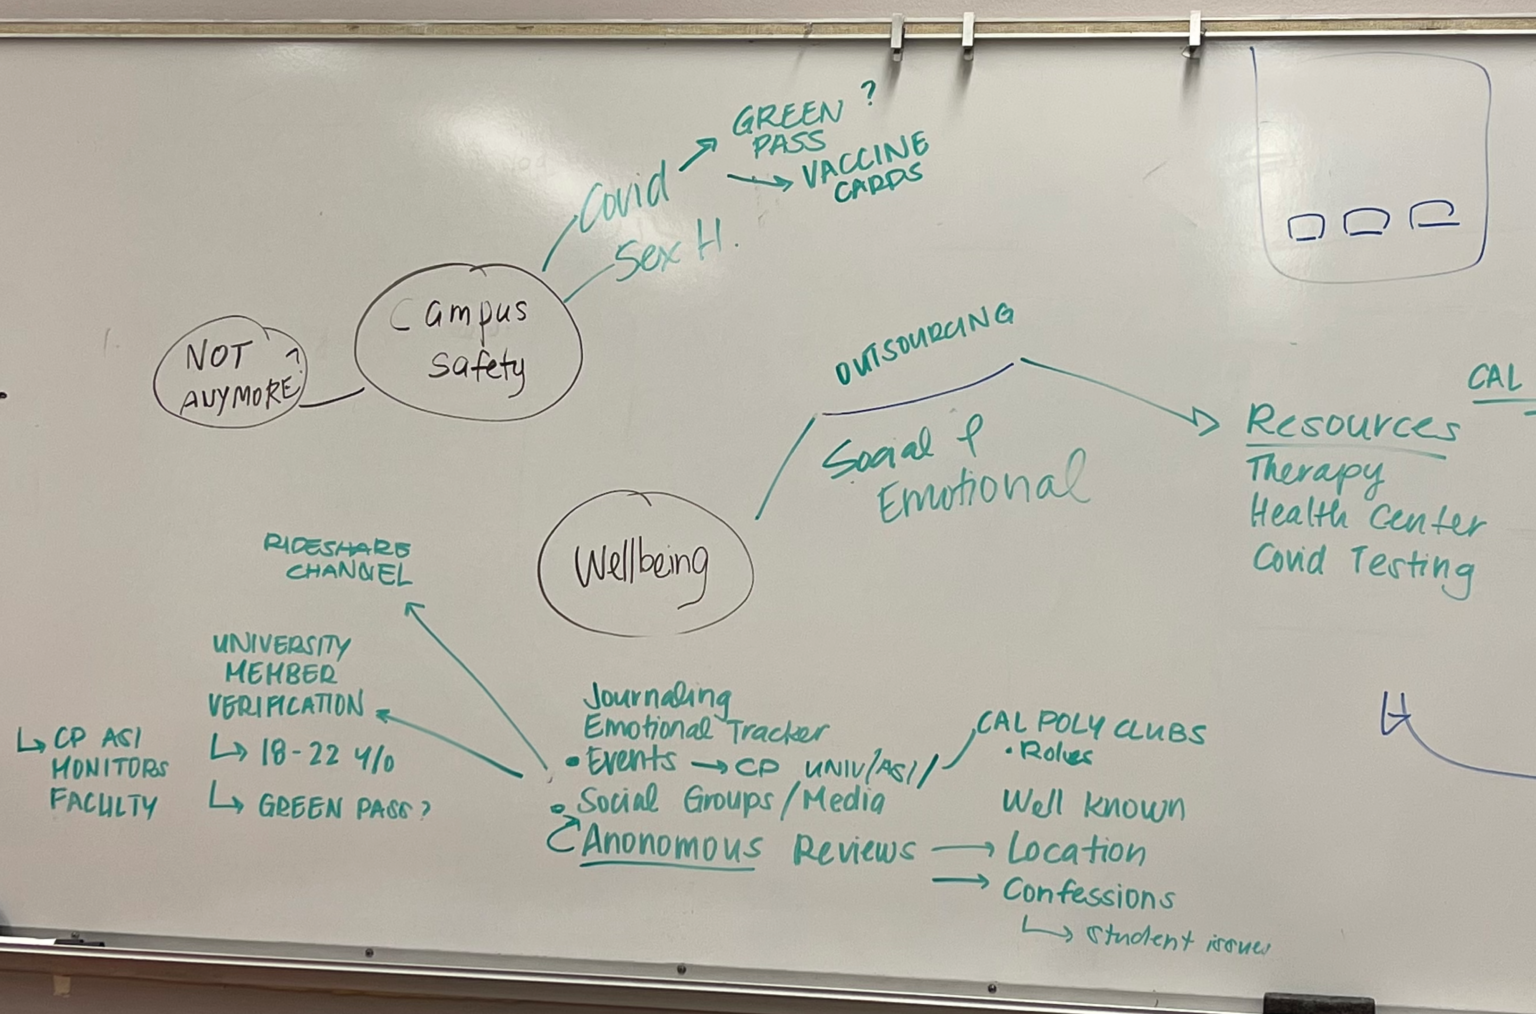 GREEN ?
PASS
VACCINE
CARDS
Covid
Sex H.
Campus
Safety
NOT
ANYMORE?
OUTSOURCING
Social &
Emotional
CAL
Resources
Therapy
Health Center
Covid Testing
Wellbeing
RIDESHARE
CHANNEL
UNIVERSITY
MEMBER
VERIFICATION
↳ 18-22 Y/O
↳ GREEN PASS?
↳ CP ASI
MONITORS
FACULTY
Journaling
Emotional Tracker
• Events → CP UNIV/ASI/
• Social Groups/Media
Anonomous Reviews → Location
→ Confessions
↳ student issues
CAL POLY CLUBS
• Roles
Well known